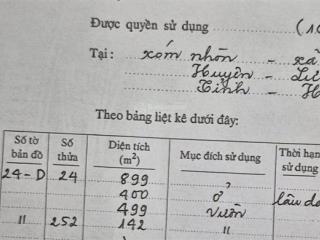 Được quyền sử dụng (10
Tại: xóm nhòn - xã
Huyện - Lư
Tỉnh - H
Theo bảng liệt kê dưới đây:
Số tờ bản đồ Số thửa Diện tích (m²) Mục đích sử dụng Thời hạn sử dụng
24-D 24 899 ?
400 ở lâu dà
499 vườn
" 252 142 "